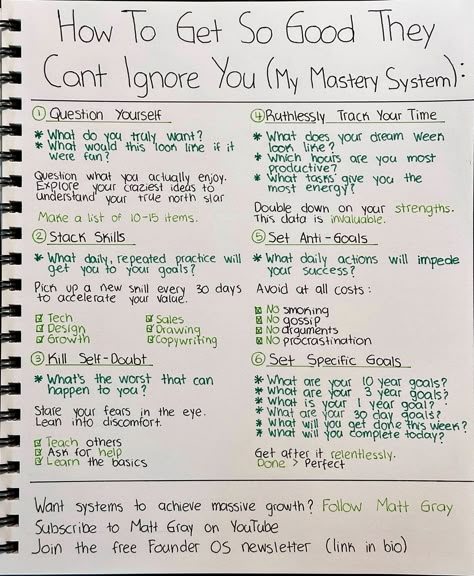 How To Get So Good They
Cant Ignore You (My Mastery System):
① Question Yourself
* What do you truly want?
* What would this look like if it
were fun?
Question what you actually enjoy.
Explore your craziest ideas to
understand your true north star
Make a list of 10-15 items.
② Stack Skills
* What daily, repeated practice will
get you to your goals?
Pick up a new skill every 30 days
to accelerate your value.
☑ Tech
☑ Design
☑ Growth
☑ Sales
☑ Drawing
☑ Copywriting
③ Kill Self-Doubt
* What's the worst that can
happen to you?
Stare your fears in the eye.
Lean into discomfort.
☑ Teach others
☑ Ask for help
☑ Learn the basics
④ Ruthlessly Track Your Time
* What does your dream week
look like?
* Which hours are you most
productive?
* What tasks give you the
most energy?
Double down on your strengths.
This data is invaluable.
⑤ Set Anti-Goals
* What daily actions will impede
your success?
Avoid at all costs:
☒ NO smoking
☒ NO gossip
☒ NO arguments
☒ NO procrastination
⑥ Set Specific Goals
* What are your 10 year goals?
* What are your 3 year goals?
* What is your 1 year goal?
* What are your 30 day goals?
* What will you get done this week?
* What will you complete today?
Get after it relentlessly.
Done > Perfect
Want systems to achieve massive growth? Follow Matt Gray
Subscribe to Matt Gray on YouTube
Join the free Founder OS newsletter (link in bio)